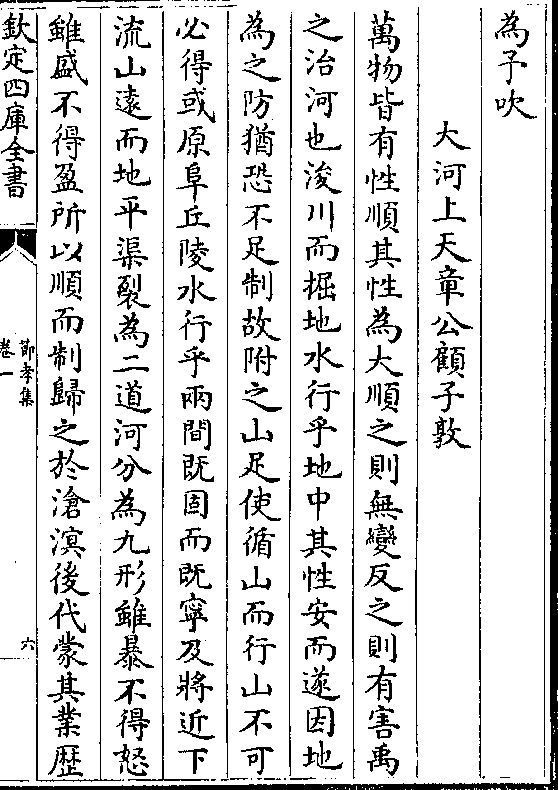 為予吹
大河上天章公顧子敦
萬物皆有性順其性為大順之則無變反之則有害禹
之治河也浚川而掘地水行乎地中其性安而遂因地
為之防猶恐不足制故附之山足使循山而行山不可
必得或原阜丘陵水行乎兩間既固而既寧及將近下
流山遠而地平渠裂為二道河分為九形雖暴不得怒
雖盛不得盈所以順而制歸之於滄溟後代蒙其業歴
欽定四庫全書
節孝集
卷一
六